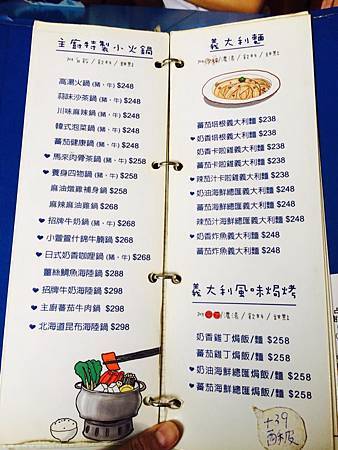 主廚特製小火鍋
高湯火鍋(豬、牛) $248
蒜味沙茶鍋(豬、牛) $248
川味麻辣鍋(豬、牛) $248
韓式泡菜鍋(豬、牛) $248
蕃茄健康鍋(豬、牛) $248
馬來肉骨茶鍋(豬、牛) $258
養身四物鍋(豬、牛) $258
麻油燉雞補身鍋 $258
麻辣麻油雞鍋 $268
招牌牛奶鍋(豬、牛) $268
小蠻蠻什錦牛腩鍋 $268
日式奶香咖哩鍋(豬、牛) $268
薑絲鯛魚海陸鍋 $298
招牌牛奶海陸鍋 $298
主廚蕃茄牛肉鍋 $298
北海道昆布海陸鍋 $298
義大利麵
蕃茄培根義大利麵 $238
奶香培根義大利麵 $238
奶香卡啦雞義大利麵 $238
蕃茄卡啦雞義大利麵 $238
辣茄汁卡啦雞義大利麵 $238
奶油海鮮總匯義大利麵 $248
蕃茄海鮮總匯義大利麵 $248
辣茄汁海鮮總匯義大利麵 $248
奶香炸魚義大利麵 $248
蕃茄炸魚義大利麵 $248
義大利風味焗烤
奶香雞丁焗飯/麵 $258
蕃茄雞丁焗飯/麵 $258
奶油海鮮總匯焗飯/麵 $258
蕃茄海鮮總匯焗飯/麵 $258
+39
酥皮